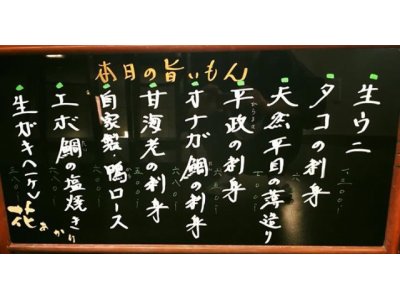 本日の旨いもん
生ウニ
タコの刺身
天然平目の薄造り
平政の刺身
オナガ鯛の刺身
甘海老の刺身
自家製 鴨ロース
エボ鯛の塩焼き
生ガキ(一ケ)
花あかり